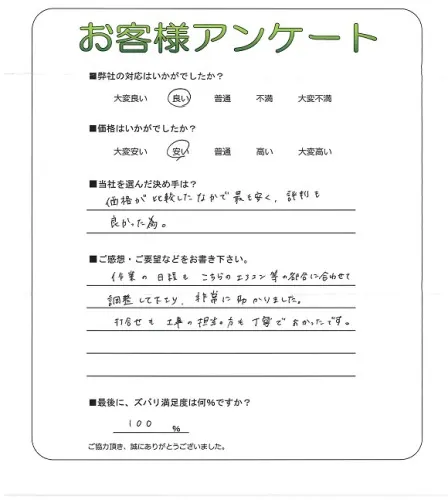 お客様アンケート
■弊社の対応はいかがでしたか?
大変良い 良い 普通 不満 大変不満
■価格はいかがでしたか?
大変安い 安い 普通 高い 大変高い
■当社を選んだ決め手は?
価格が比較したなかで最も安く、評判も
良かった為。
■ご感想・ご要望などをお書き下さい。
作業の日程も こちらのエアコン等の都合に合わせて
調整して下さり、非常に助かりました。
打合せも 工事の担当の方も丁寧で よかったです。
■最後に、ズバリ満足度は何%ですか?
100 %
ご協力頂き、誠にありがとうございました。